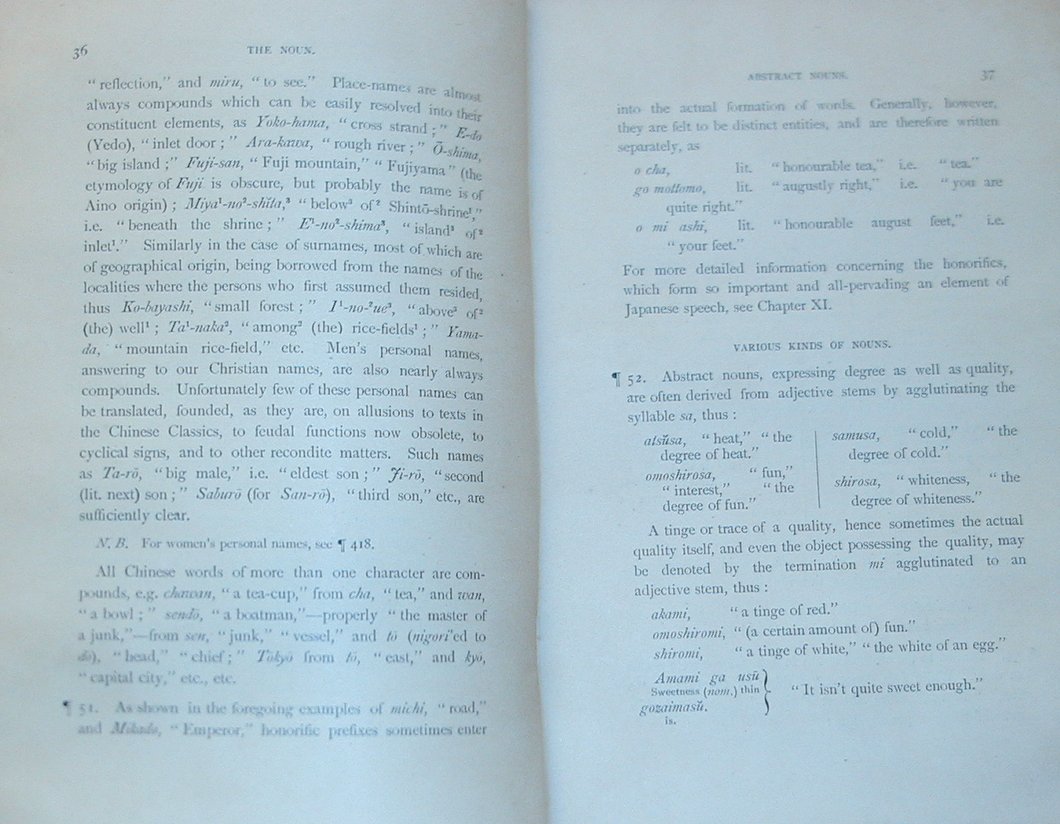 36
THE NOUN.
“ reflection,” and miru, “ to see.” Place-names are almost
always compounds which can be easily resolved into their
constituent elements, as Yoko-hama, “ cross strand ; ” E-do
(Yedo), “ inlet door ; ” Ara-kawa, “ rough river ; ” Ō-shima,
“ big island ;” Fuji-san, “ Fuji mountain,” “ Fujiyama ” (the
etymology of Fuji is obscure, but probably the name is of
Aino origin) ; Miya¹-no²-shita,³ “ below³ of² Shintō-shrine¹,”
i.e. “ beneath the shrine ; ” E¹-no²-shima³, “ island³ of²
inlet¹.” Similarly in the case of surnames, most of which are
of geographical origin, being borrowed from the names of the
localities where the persons who first assumed them resided,
thus Ko-bayashi, “ small forest ; ” I¹-no-²ue³, “ above³ of²
(the) well¹ ; Ta¹-naka², “ among² (the) rice-fields¹ ; ” Yama-
da, “ mountain rice-field,” etc. Men's personal names,
answering to our Christian names, are also nearly always
compounds. Unfortunately few of these personal names can
be translated, founded, as they are, on allusions to texts in
the Chinese Classics, to feudal functions now obsolete, to
cyclical signs, and to other recondite matters. Such names
as Ta-rō, “ big male,” i.e. “ eldest son ; ” Ji-rō, “ second
(lit. next) son ; ” Saburō (for San-rō), “ third son,” etc., are
sufficiently clear.
N. B. For women's personal names, see ¶ 418.
All Chinese words of more than one character are com-
pounds, e.g. chawan, “ a tea-cup,” from cha, “ tea,” and wan,
“ a bowl ; ” sendō, “ a boatman,”—properly “ the master of
a junk,”—from sen, “ junk,” “ vessel,” and tō (nigori'ed to
dō), “ head,” “ chief ; ” Tōkyō from tō, “ east,” and kyō,
“ capital city,” etc., etc.
¶ 51. As shown in the foregoing examples of michi, “ road,”
and Mikado, “ Emperor,” honorific prefixes sometimes enter
ABSTRACT NOUNS.
37
into the actual formation of words. Generally, however,
they are felt to be distinct entities, and are therefore written
separately, as
o cha, lit. “ honourable tea,” i.e. “ tea.”
go mottomo, lit. “ augustly right,” i.e. “ you are
quite right.”
o mi ashi, lit. “ honourable august feet,” i.e.
“ your feet.”
For more detailed information concerning the honorifics,
which form so important and all-pervading an element of
Japanese speech, see Chapter XI.
VARIOUS KINDS OF NOUNS.
¶ 52. Abstract nouns, expressing degree as well as quality,
are often derived from adjective stems by agglutinating the
syllable sa, thus :
atsŭsa, “ heat,” “ the
degree of heat.”
omoshirosa, “ fun,”
“ interest,” “ the
degree of fun.”
samusa, “ cold,” “ the
degree of cold.”
shirosa, “ whiteness, “ the
degree of whiteness.”
A tinge or trace of a quality, hence sometimes the actual
quality itself, and even the object possessing the quality, may
be denoted by the termination mi agglutinated to an
adjective stem, thus :
akami, “ a tinge of red.”
omoshiromi, “ (a certain amount of) fun.”
shiromi, “ a tinge of white,” “ the white of an egg.”
Amami ga usŭ
Sweetness (nom.) thin
gozaimasŭ.
is.
“ It isn't quite sweet enough.”